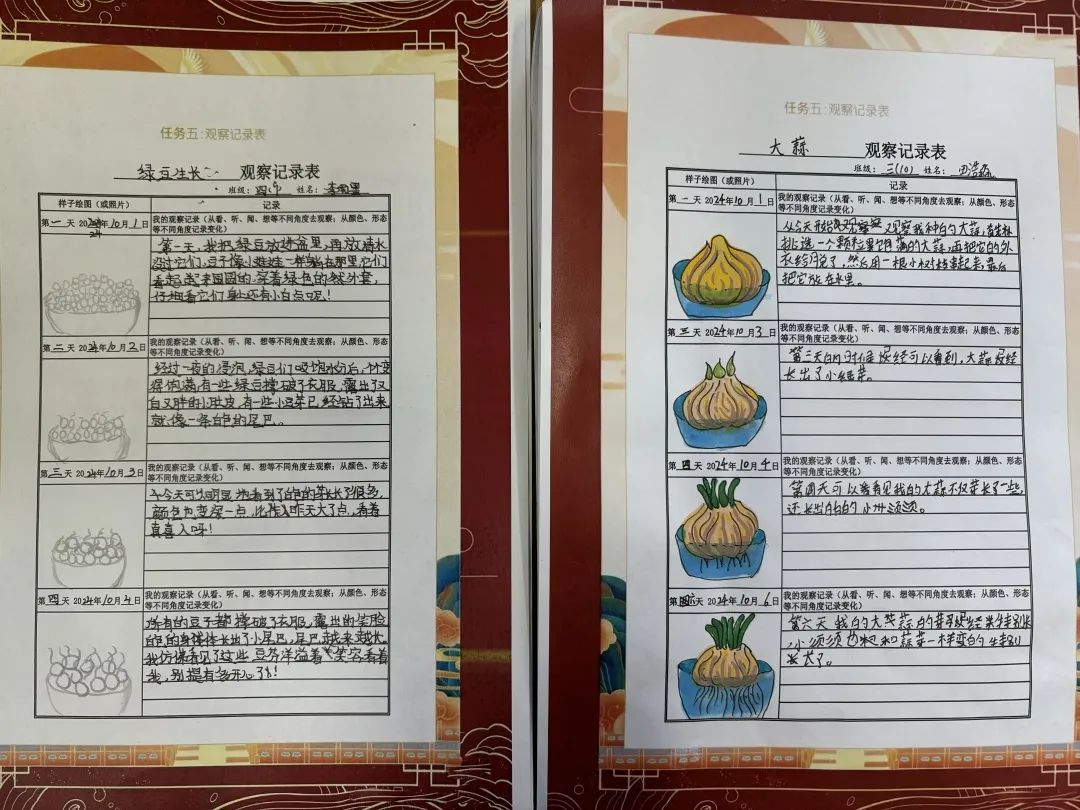 任务五:观察记录表
绿豆生长 观察记录表
班级: 姓名:
样子绘图（或照片） 记录
第一天 2024年10月1日 我的观察记录（从看、听、闻、想等不同角度去观察；从颜色、形态等不同角度记录变化）
第一天，我把绿豆放进盆里，再放清水
没过它们，豆子像小娃娃一样躺在那里，它们
看起来圆圆的，穿着绿色的外套，
仔地看它们身上还有小白点呢！
第二天 2024年10月2日 我的观察记录（从看、听、闻、想等不同角度去观察；从颜色、形态等不同角度记录变化）
经过一夜的浸泡，绿豆们吸饱水分后，变
得饱满，有一些绿豆撑破了衣服，露出了又
白又胖的小肚皮，有一些小豆芽已经钻了出来
就像一条白色的尾巴。
第三天 2024年10月3日 我的观察记录（从看、听、闻、想等不同角度去观察；从颜色、形态等不同角度记录变化）
今天可以明显地看到了白色的芽长了很多，
颜色也变深一点，比昨天大了点，看着
真喜人呀！
第四天 2024年10月4日 我的观察记录（从看、听、闻、想等不同角度去观察；从颜色、形态等不同角度记录变化）
所有的豆子都撑破了衣服，露出的笑脸
白的身体长出了小尾巴，尾巴越来越长
我仿佛看见了这些豆芽洋溢着笑容看着
我，别提有多开心了！
任务五:观察记录表
大蒜 观察记录表
班级:三(10) 姓名:
样子绘图（或照片） 记录
第一天 2024年10月1日 我的观察记录（从看、听、闻、想等不同角度去观察；从颜色、形态等不同角度记录变化）
从今天开始观察我种的大蒜，
挑选一个颗粒饱满的大蒜，再把它的外
衣给脱了，然后用一根小树枝拿起来，最后
把它放在水里。
第三天 2024年10月3日 我的观察记录（从看、听、闻、想等不同角度去观察；从颜色、形态等不同角度记录变化）
第三天的时候已经可以看到，大蒜已经
长出了小绿芽。
第四天 2024年10月4日 我的观察记录（从看、听、闻、想等不同角度去观察；从颜色、形态等不同角度记录变化）
第四天可以看见我的大蒜不仅芽长了一些，
还长出白白的小须须。
第六天 2024年10月6日 我的观察记录（从看、听、闻、想等不同角度去观察；从颜色、形态等不同角度记录变化）
第六天我的大蒜的芽已经特别长
，小须须也和蒜芽一样变的特别
长了。